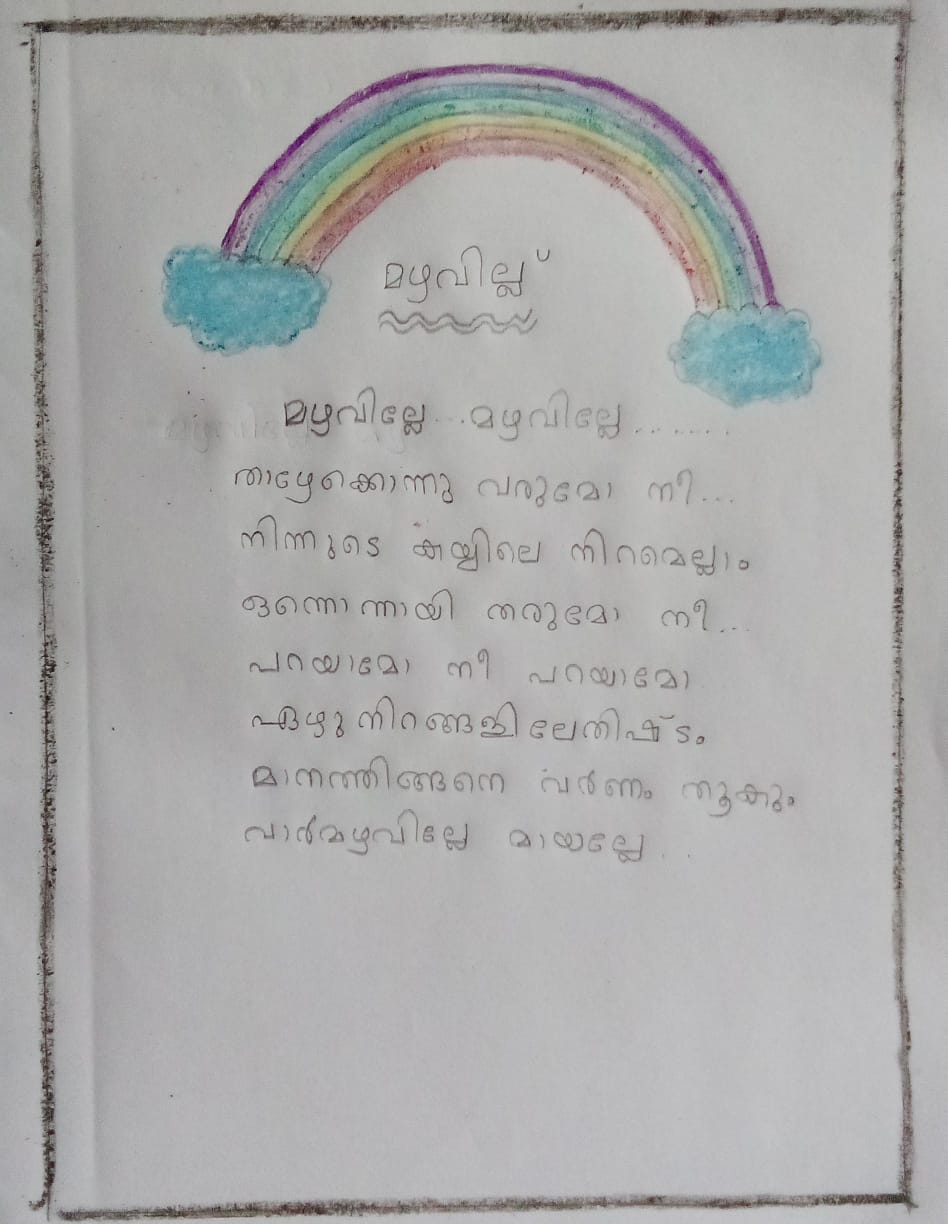 മഴവില്ല്
മഴവില്ലേ...മഴവില്ലേ.......
താഴേക്കൊന്നു വരുമോ നീ...
നിന്നുടെ കയ്യിലെ നിറമെല്ലാം
ഒന്നൊന്നായി തരുമോ നീ...
പറയാമോ നീ പറയാമോ
ഏഴു നിറങ്ങളിലേതിഷ്ടം
മാനത്തിങ്ങനെ വർണം തൂകും
വാർമഴവില്ലേ മായല്ലേ...